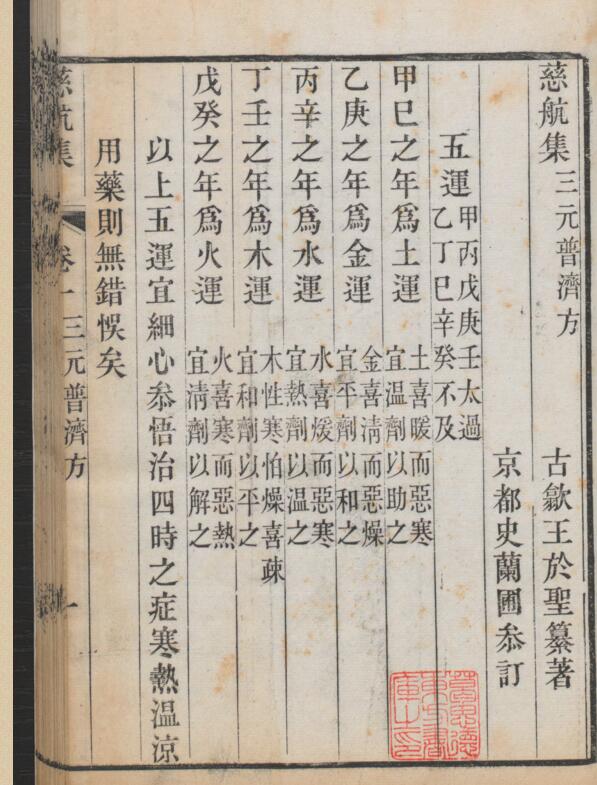 慈航集三元普濟方 古歙王於聖纂著
京都史蘭圃叅訂
五運 甲丙戊庚壬太過
乙丁巳辛癸不及
甲巳之年爲土運 土喜暖而惡寒
宜温劑以助之
乙庚之年爲金運 金喜清而惡燥
宜平劑以和之
丙辛之年爲水運 水喜煖而惡寒
宜熱劑以温之
丁壬之年爲木運 木性寒怕燥喜疎
宜和劑以平之
戊癸之年爲火運 火喜寒而惡熱
宜清劑以解之
以上五運宜細心叅悟治四時之症寒熱温凉
用藥則無錯悞矣
慈航集 卷一 三元普濟方 一
葛思德東方書庫之印